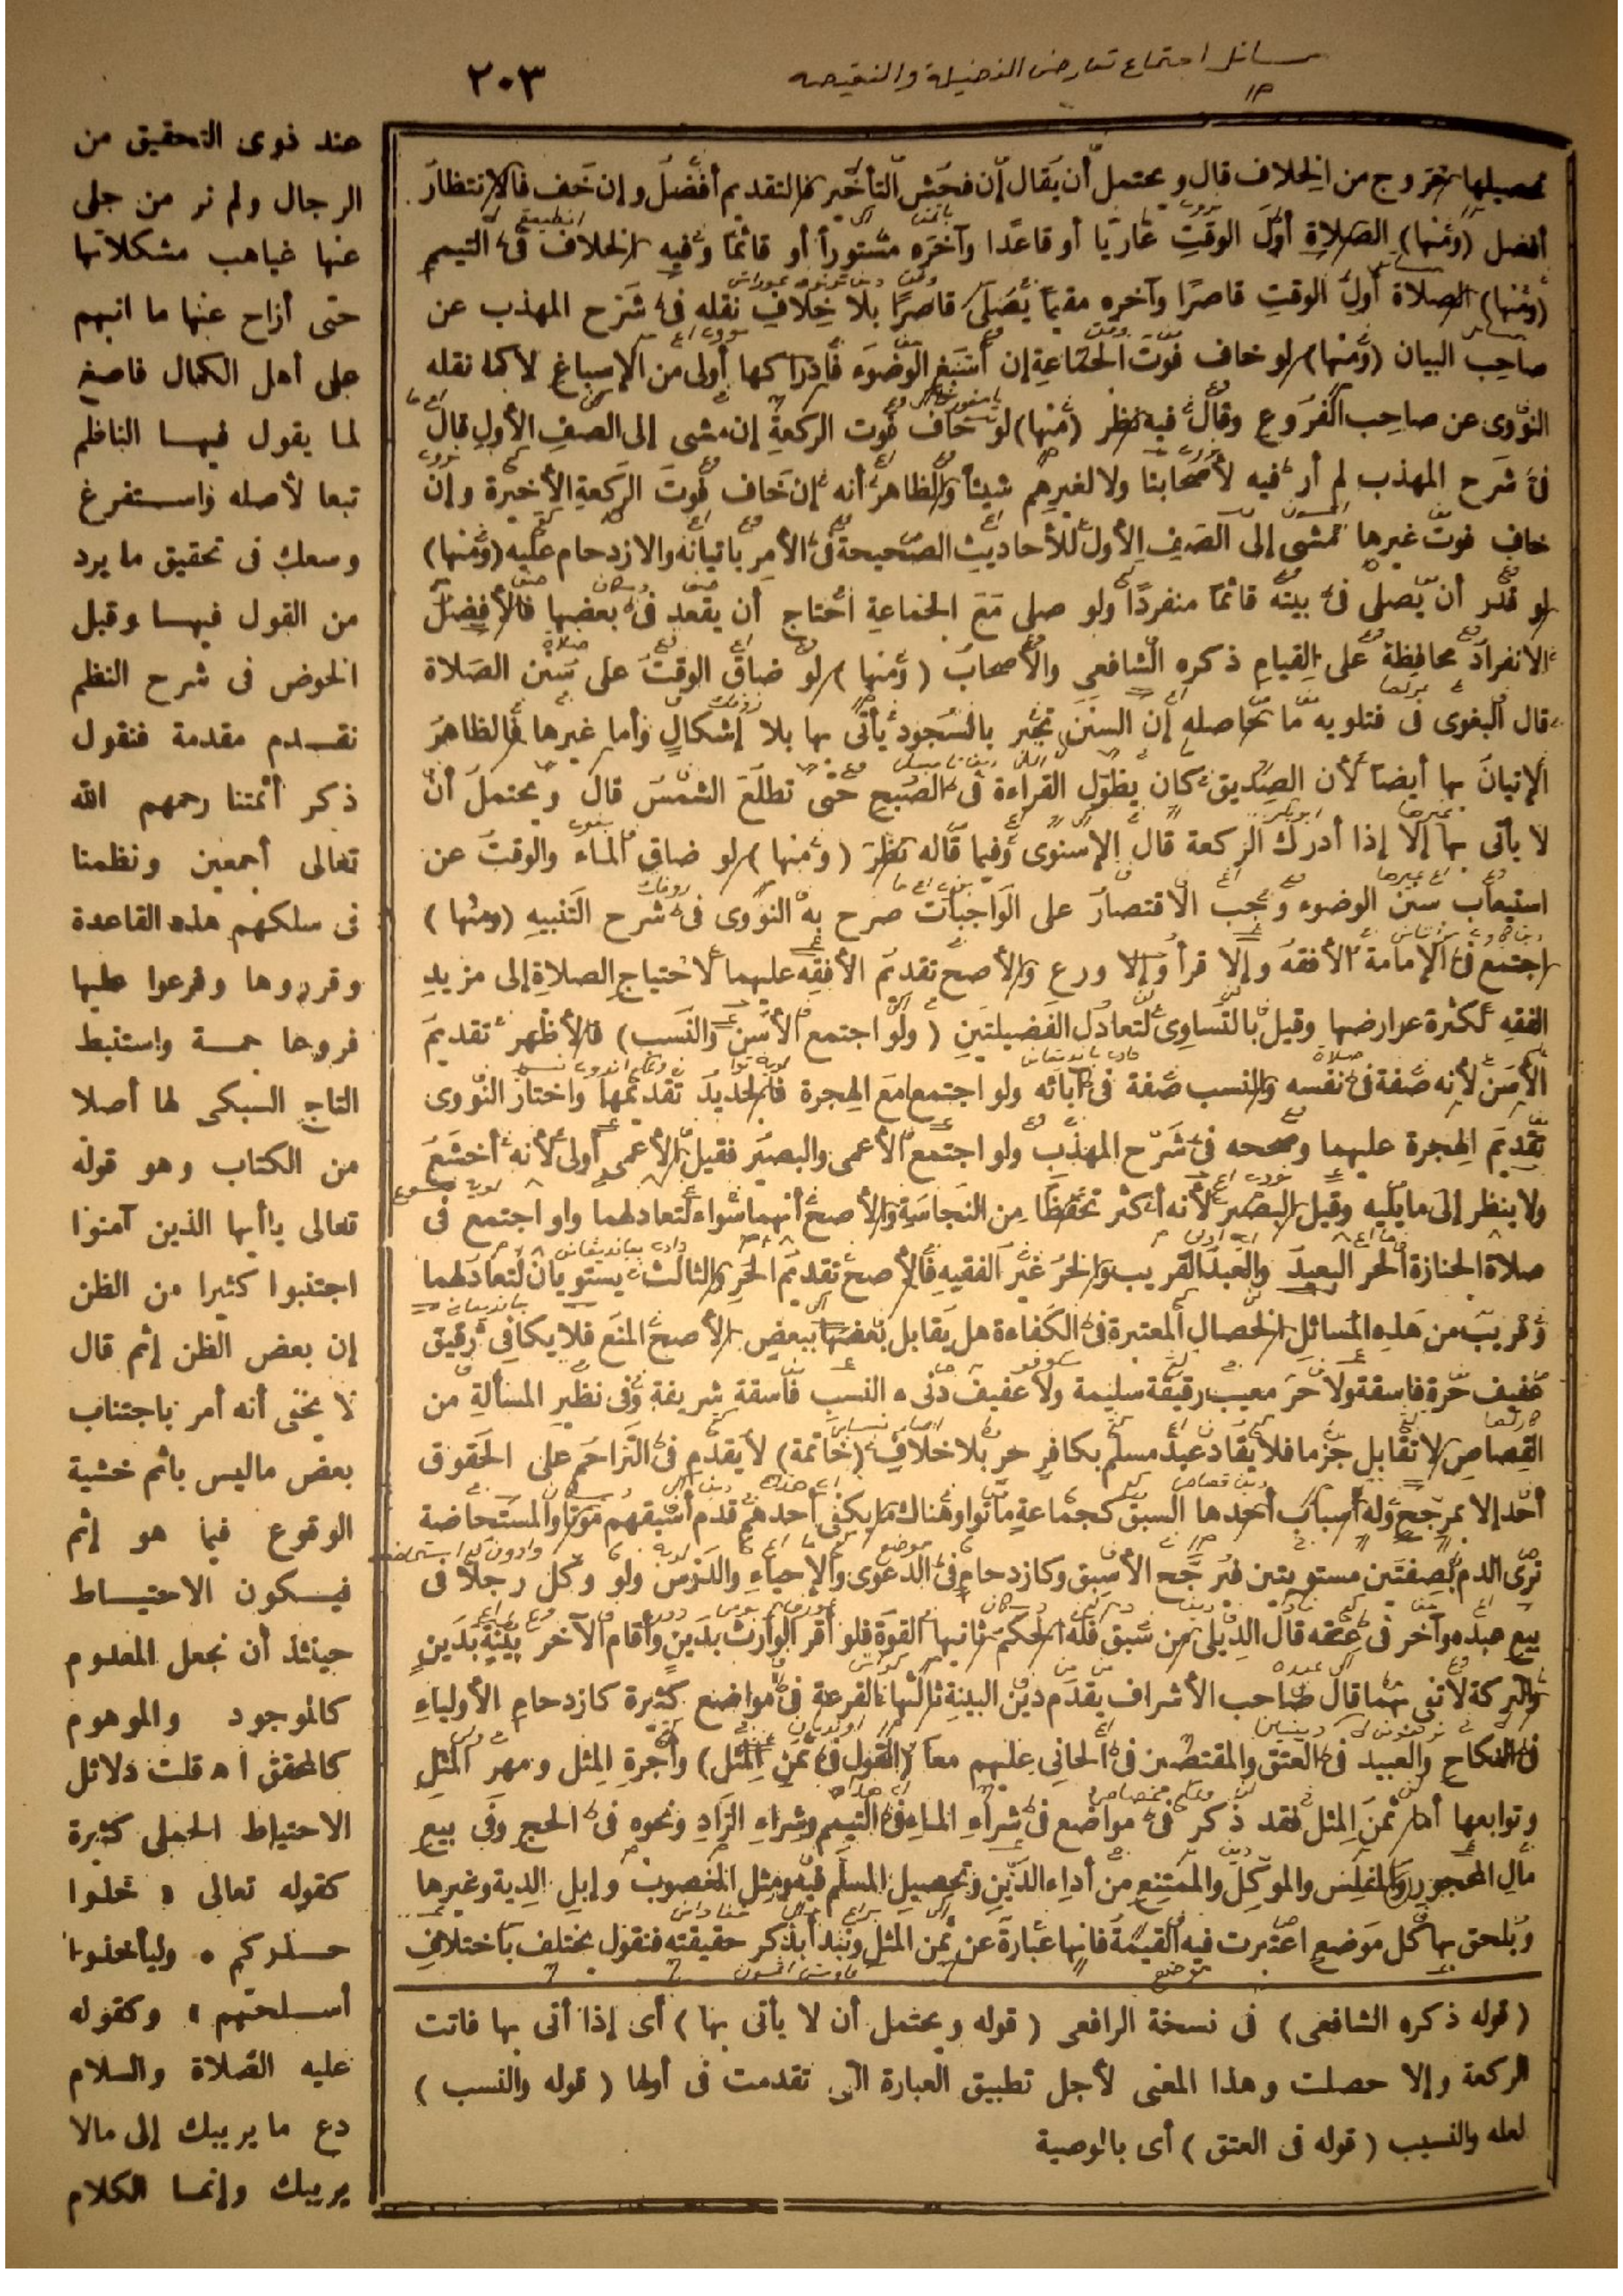 ٢٠٣
مسائل اجتماع تعارض الفضيلة والنقيصة
تحصيلها للخروج من الخلاف قال ويحتمل أن يقال إن فحش التأخير فالتقديم أفضل وإن خف فالانتظار
أفضل (ومنها) الصلاة أول الوقت عاريا أو قاعدا وآخره مستورا أو قائما وفيه الخلاف فى التيمم
(ومنها) الصلاة أول الوقت قاصرا وآخره مقيما يصلى قاصرا بلا خلاف نقله فى شرح المهذب عن
صاحب البيان (ومنها) لو خاف فوت الجماعة إن أسبغ الوضوء فإدراكها أولى من الإسباغ لا كما نقله
النووى عن صاحب الفروع وقال فيه نظر (منها) لو خاف فوت الركعة إن مشى إلى الصف الأول قال
فى شرح المهذب لم أر فيه لأصحابنا ولا لغيرهم شيئا والظاهر أنه إن خاف فوت الركعة الأخيرة وإن
خاف فوت غيرها مشى إلى الصف الأول للأحاديث الصحيحة فى الأمر بإتيانه والازدحام عليه (ومنها)
لو قدر أن يصلى فى بيته قائما منفردا ولو صلى مع الجماعة احتاج أن يقعد فى بعضها فالأفضل
الانفراد محافظة على القيام ذكره الشافعى والأصحاب (ومنها) لو ضاق الوقت على سنن الصلاة
قال البغوى فى فتاويه ما حاصله إن السنن تجبر بالسجود يأتى بها بلا إشكال وأما غيرها فالظاهر
الإتيان بها أيضا لأن الصديق كان يطول القراءة فى الصبح حتى تطلع الشمس قال ويحتمل أن
لا يأتى بها إلا إذا أدرك الركعة قال الإسنوى وفيما قاله نظر (ومنها) لو ضاق الماء والوقت عن
استيعاب سنن الوضوء وجب الاقتصار على الواجبات صرح به النووى فى شرح التنبيه (ومنها)
اجتمع فى الإمامة الأفقه وإلا قرأ وإلا ورع والأصح تقديم الأفقه عليهما لاحتياج الصلاة إلى مزيد
الفقه لكثرة عوارضها وقيل بالتساوى لتعادل الفضيلتين (ولو اجتمع الأسن والنسب) فالأظهر تقديم
الأسن لأنه صفة فى نفسه والنسب صفة فى آبائه ولو اجتمعا مع الهجرة فالجديد تقديمها واختار النووى
تقديم الهجرة عليهما وصححه فى شرح المهذب ولو اجتمع الأعمى والبصير فقيل الأعمى أولى لأنه أخشع
ولا ينظر إلى ما يليه وقيل البصير لأنه أكثر تحفظا من النجاسة والأصح أنهما سواء لتعادلهما واو اجتمع فى
صلاة الجنازة الحر البعيد والعبد القريب والحر غير الفقيه فالأصح تقديم الحر والثالث يستويان لتعادلهما
وقريب من هذه المسائل الخصال المعتبرة فى الكفاءة هل يقابل بعضها ببعض الأصح المنع فلا يكافئ رقيق
عفيف حرة فاسقة ولا حر معيب رقيقة سليمة ولا عفيف دنىء النسب فاسقة شريفة وفى نظير المسألة من
القصاص لا تقابل جزما فلا يقاد عبد مسلم بكافر حر بلا خلاف (خاتمة) لا يقدم فى التزاحم على الحقوق
أحد إلا بمرجح وله أسباب أحدها السبق كجماعة ماتوا وهناك ما يكفى أحدهم قدم أسبقهم موتا والمستحاضة
ترى الدم بصفتين مستويتين فيرجح الأسبق وكازدحام فى الدعوى والإحياء والدرس ولو وكل رجلا فى
بيع عبده وآخر فى عتقه قال الدبيلى من سبق فله الحكم ثانيها القوة فلو أقر الوارث بدين وأقام الآخر بينة بدين
والتركة لا تفى بهما قال صاحب الأشراف يقدم دين البينة ثالثها القرعة فى مواضع كثيرة كازدحام الأولياء
فى النكاح والعبيد فى العتق والمقتصين فى الجانى عليهم معا (القول فى ثمن المثل) وأجرة المثل ومهر المثل
وتوابعها أما ثمن المثل فقد ذكر فى مواضع فى شراء الماء فى التيمم وشراء الزاد ونحوه فى الحج وفى بيع
مال المحجور والمفلس والموكل والممتنع من أداء الدين وتحصيل المسلم فيه ومثل المغصوب وإبل الدية وغيرها
ويلحق بها كل موضع اعتبرت فيه القيمة فإنها عبارة عن ثمن المثل ونبدأ بذكر حقيقته فنقول يختلف باختلاف
(قوله ذكره الشافعى) فى نسخة الرافعى (قوله ويحتمل أن لا يأتى بها) أى إذا أتى بها فاتت
الركعة وإلا حصلت وهذا المعنى لأجل تطبيق العبارة التى تقدمت فى أولها (قوله والنسب)
لعله والنسيب (قوله فى العتق) أى بالوصية
عند ذوى التحقيق من
الرجال ولم نر من جلى
عنها غياهب مشكلاتها
حتى أزاح عنها ما انبهم
على أهل الكمال فاصغ
لما يقول فيها الناظم
تبعا لأصله واستفرغ
وسعك فى تحقيق ما يرد
من القول فيها وقبل
الخوض فى شرح النظم
نقدم مقدمة فنقول
ذكر أئمتنا رحمهم الله
تعالى أجمعين ونظمنا
فى سلكهم هذه القاعدة
وقرروها وفرعوا عليها
فروعا جمة واستنبط
التاج السبكى لها أصلا
من الكتاب وهو قوله
تعالى ياأيها الذين آمنوا
اجتنبوا كثيرا من الظن
إن بعض الظن إثم قال
لا يخفى أنه أمر باجتناب
بعض ماليس بإثم خشية
الوقوع فيما هو إثم
فيكون الاحتياط
حينئذ أن نجعل المعدوم
كالموجود والموهوم
كالمحقق اه قلت دلائل
الاحتياط الجملى كثيرة
كقوله تعالى « خذوا
حذركم ، وليأخذوا
أسلحتهم » وكقوله
عليه الصلاة والسلام
دع ما يريبك إلى مالا
يريبك وإنما الكلام